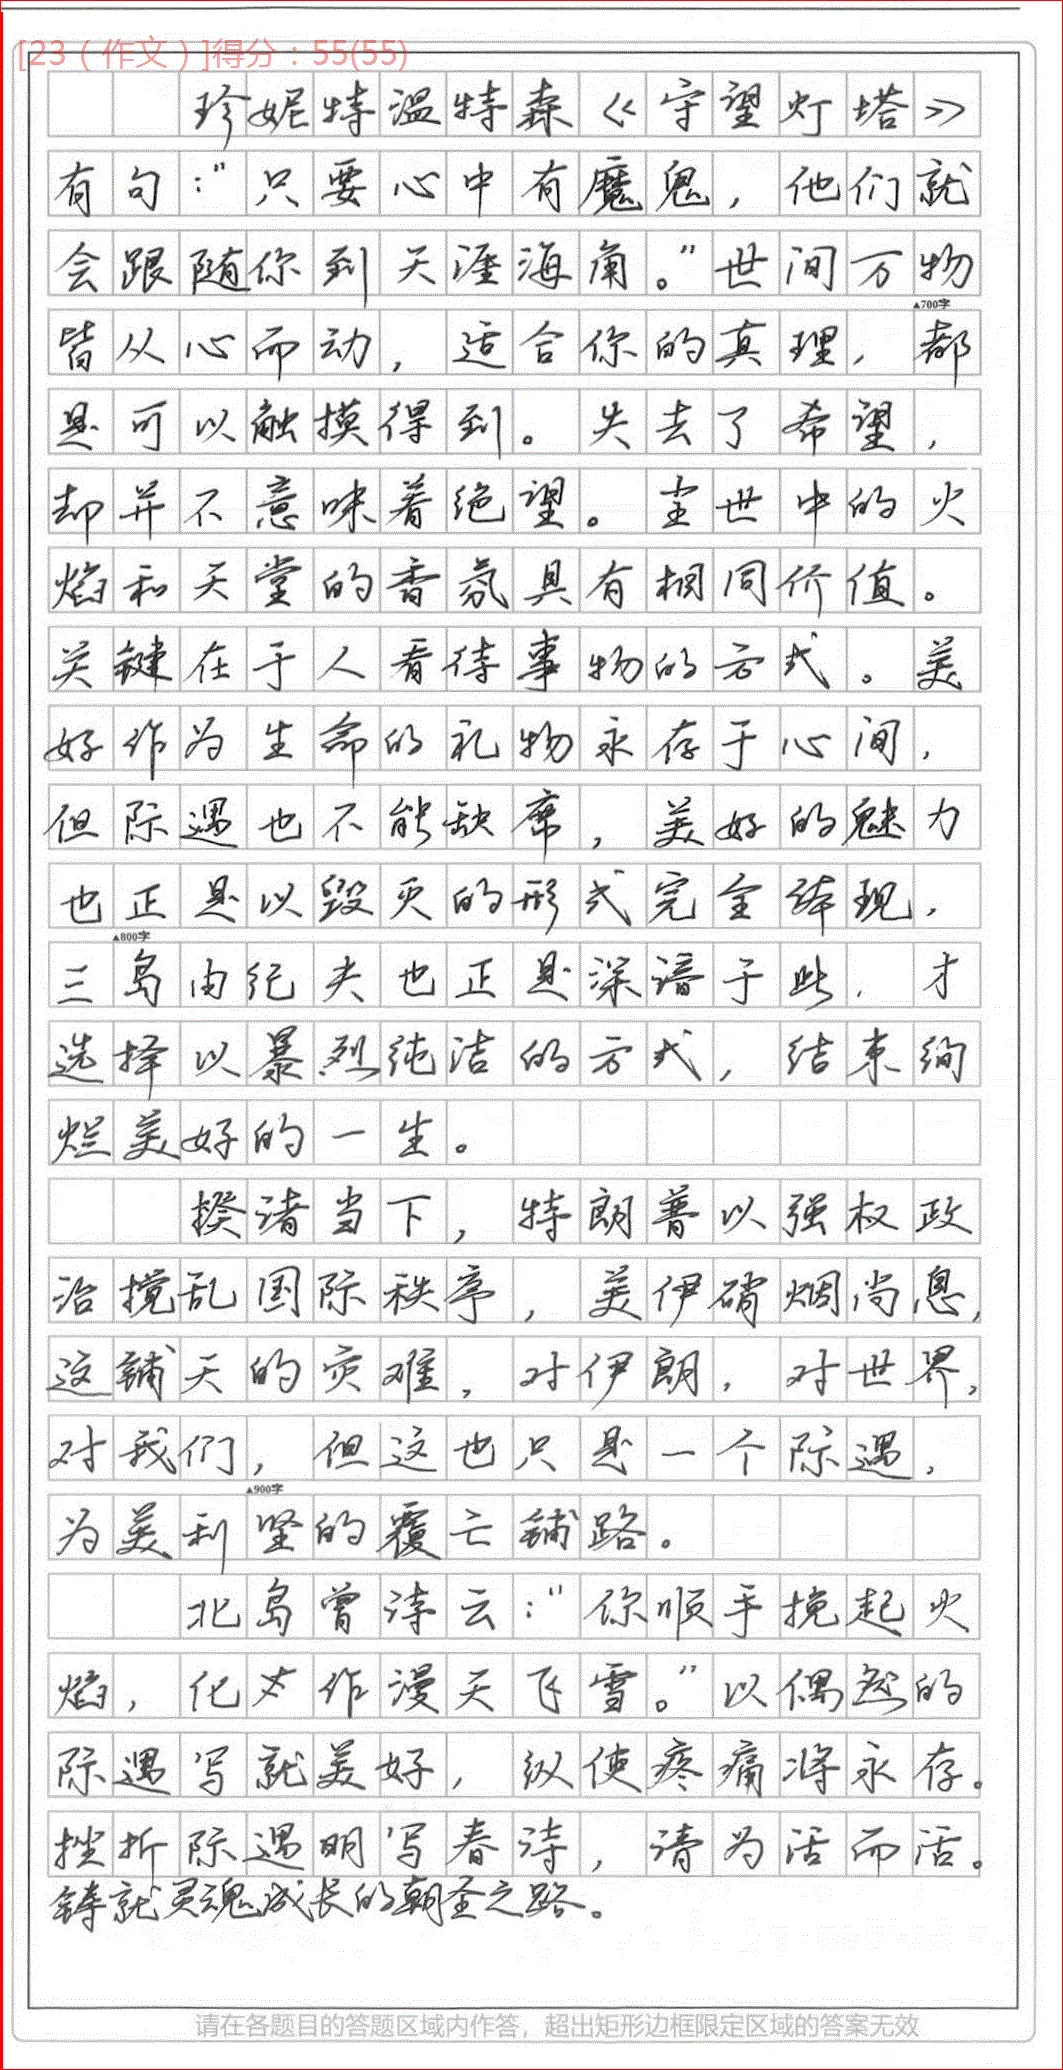 [23（作文）]得分：55(55)
珍妮特温特森《守望灯塔》
有句：“只要心中有魔鬼，他们就
会跟随你到天涯海角。”世间万物
▲700字
皆从心而动，适合你的真理，都
是可以触摸得到。失去了希望，
却并不意味着绝望。尘世中的火
焰和天堂的香氛具有相同价值。
关键在于人看待事物的方式。美
好作为生命的礼物永存于心间，
但际遇也不能缺席，美好的魅力
也正是以毁灭的形式完全体现，
▲800字
三岛由纪夫也正是深谙于此，才
选择以暴烈纯洁的方式，结束绚
烂美好的一生。
揆诸当下，特朗普以强权政
治搅乱国际秩序，美伊硝烟尚息，
这铺天的灾难，对伊朗，对世界，
对我们，但这也只是一个际遇，
▲900字
为美利坚的覆亡铺路。
北岛曾诗云：“你顺手挽起火
焰，化作漫天飞雪。”以偶然的
际遇写就美好，纵使疼痛将永存。
挫折际遇明写春诗，请为活而活。
铸就灵魂成长的朝圣之路。
请在各题目的答题区域内作答，超出矩形边框限定区域的答案无效